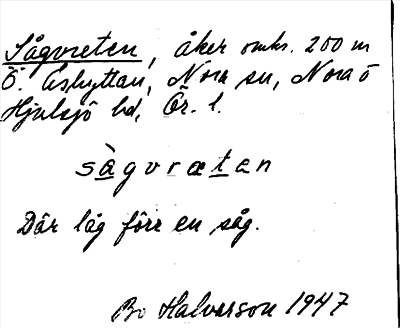 Sågvreten, åker omkr. 200 m
Ö. Åshyttan, Nora sn, Nora ö
Hjulsjö hd, Ör. l.
sàgvrætan
Där låg förr en såg.
Bo Halvarson 1947